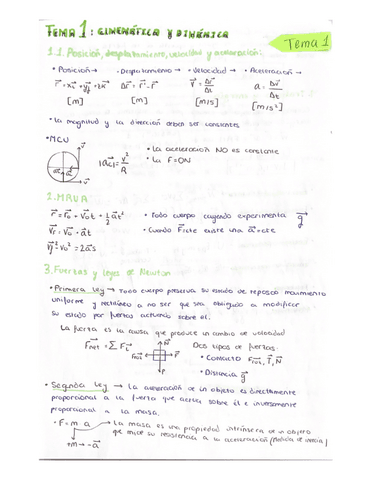 TEMA 1: CINEMÁTICA Y DINÁMICA
Tema 1
1.1. Posición, desplazamiento, velocidad y aceleración:
• Posición → • Desplazamiento → • Velocidad → • Aceleración →
r⃗ = xi⃗ + yj⃗ + zk⃗ Δr⃗ = r⃗' - r⃗ v⃗ = Δr⃗/Δt a = Δv⃗/Δt
[m] [m] [m/s] [m/s²]
• La magnitud y la dirección deben ser constantes
• MCU
|a⃗c| = v²/R
• La aceleración NO es constante
• la F = 0N
2. MRUA
r⃗ = r⃗₀ + v⃗₀t + 1/2 a⃗t²
v⃗f = v⃗₀ + a⃗t
• Todo cuerpo cayendo experimenta g⃗
• Cuando F⃗ = cte existe una a⃗ = cte
3. Fuerzas y leyes de Newton
• Primera ley → Todo cuerpo preserva su estado de reposo o movimiento
uniforme y rectilíneo a no ser que sea obligado a modificar
su estado por fuerzas actuando sobre él.
La fuerza es la causa que produce un cambio de velocidad
F⃗net = Σ F⃗i
Dos tipos de fuerzas:
• Contacto F⃗roz, T⃗, N⃗
• Distancia g⃗
• Segunda ley → La aceleración de un objeto es directamente
proporcional a la fuerza que actúa sobre él e inversamente
proporcional a la masa.
• F = m a → La masa es una propiedad intrínseca de un objeto
que mide su resistencia a la aceleración (Medida de inercia)
+m → -a⃗